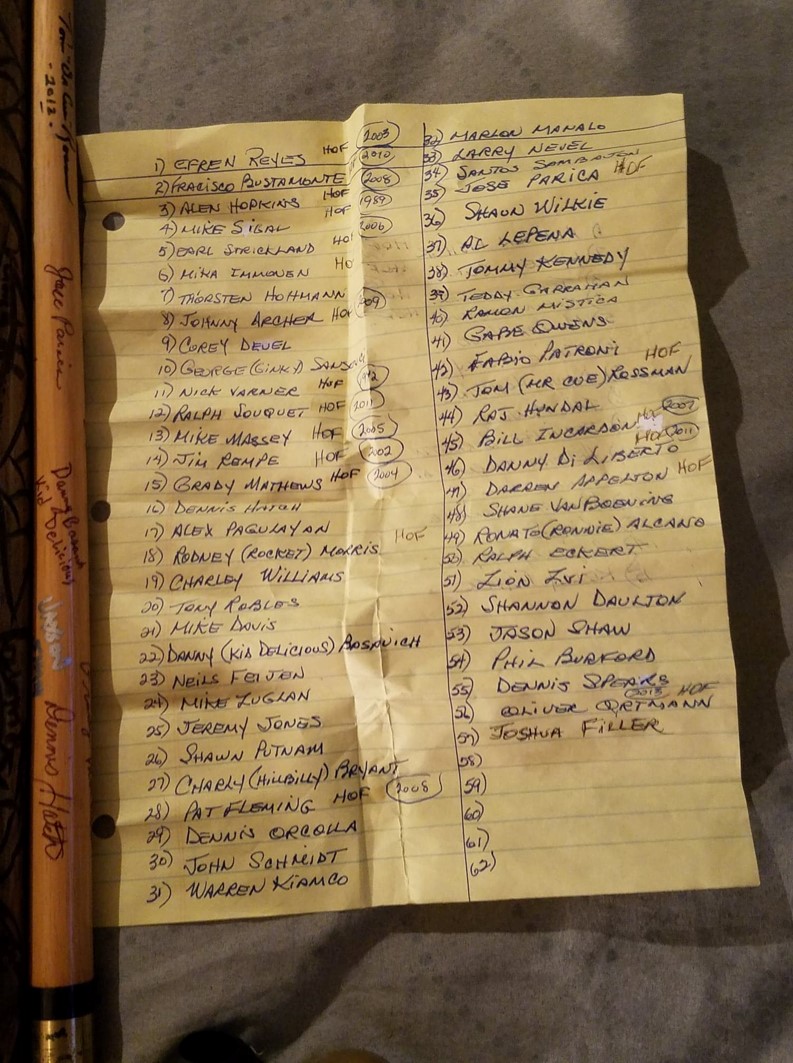 Tom "Dr. Cue" Rossman
- 2012 -
Jose Parica
Danny Basavich
Kid Delicious
JAYSON
SHAW
Dennis Hatch
1) EFREN REYES HOF 2003
2) FRACISCO BUSTAMONTE 2010
3) ALEN HOPKINS HOF 2008
4) MIKE SIGAL HOF 1989
5) EARL STRICKLAND HOF 2006
6) MIKA IMMONEN HO
7) THORSTEN HOHMANN
8) JOHNNY ARCHER HOF 009
9) COREY DEUEL
10) GEORGE (GINKY) SANSOUCI
11) NICK VARNER HOF 92
12) RALPH SOUQUET HOF 2011
13) MIKE MASSEY HOF 2005
14) JIM REMPE HOF 202
15) GRADY MATHEWS HOF 2004
16) DENNIS HATCH
17) ALEX PAGULAYAN HOF
18) RODNEY (ROCKET) MORRIS
19) CHARLEY WILLIAMS
20) TONY ROBLES
21) MIKE DAVIS
22) DANNY (KID DELICIOUS) BASAVICH
23) NEILS FEIJEN
24) MIKE ZUGLAN
25) JEREMY JONES
26) SHAWN PUTNAM
27) CHARLY (HILLBILLY) BRYANT
28) PAT FLEMING HOF 2008
29) DENNIS ORCOLLA
30) JOHN SCHMIDT
31) WARREN KIAMCO
32) MARLON MANALO
33) LARRY NEVEL
34) SANTOS SAMBAJON
35) JOSE PARICA HOF
36) SHAUN WILKIE
37) AL LEPENA
38) TOMMY KENNEDY
39) TEDDY GARRAHAN
40) RAMON MISTICA
41) GABE OWENS
42) FABIO PATRONI HOF
43) TOM (MR CUE) ROSSMAN
44) RAJ HUNDAL
45) BILL INCARDONA HOF 2007
46) DANNY Di LIBERTO HOF 2011
47) DARREN APPELTON HOF
48) SHANE VAN BOENING
49) RONATO (RONNIE) ALCANO
50) RALPH ECKERT
51) ZION ZVI
52) SHANNON DAULTON
53) JASON SHAW
54) PHIL BURFORD
55) DENNIS SPEARS
56) OLIVER ORTMANN 2013 HOF
57) JOSHUA FILLER
58)
59)
60)
61)
62)